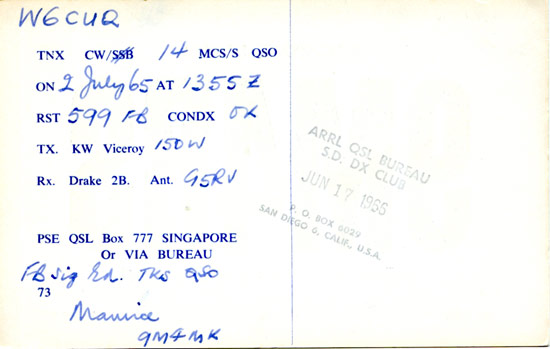 W6CUQ
TNX CW/SSB 14 MCS/S QSO
ON 2 July 65 AT 1355 Z
RST 599 FB CONDX OK
TX. KW Viceroy 150W
Rx. Drake 2B. Ant. G5RV
PSE QSL Box 777 SINGAPORE
Or VIA BUREAU
FB sig Ed. Tks QSO
73
Maurice
9M4MK
ARRL QSL BUREAU
S.D. DX CLUB
JUN 17 1966
P. O. BOX 6029
SAN DIEGO 6, CALIF., U.S.A.